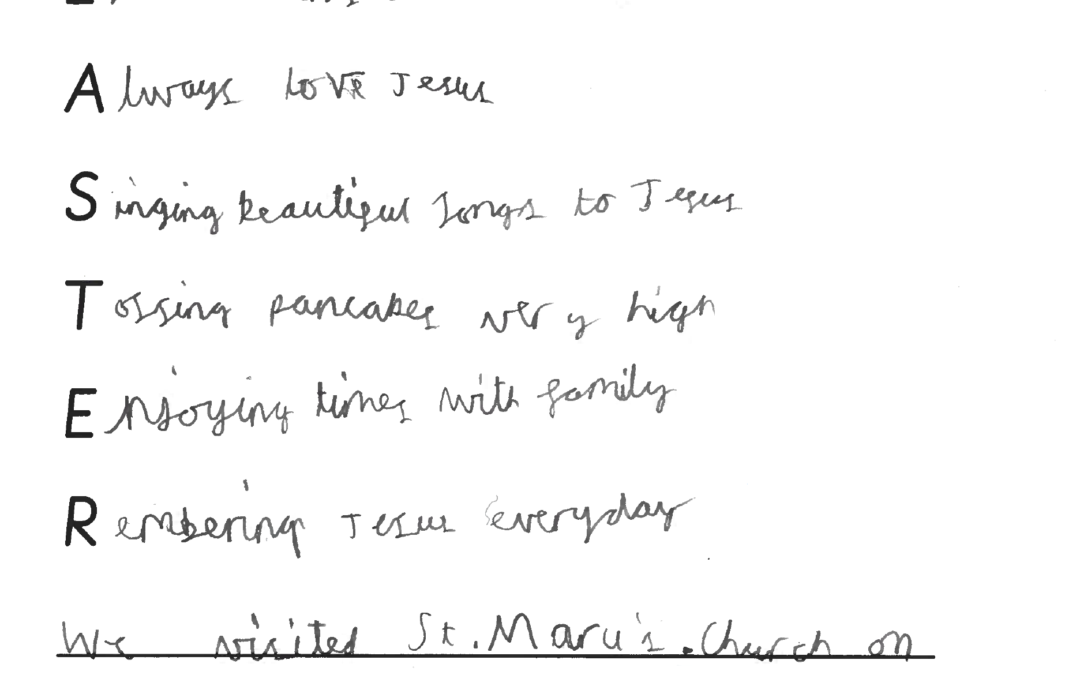 Always love Jesus
Singing beautiful songs to Jesus
Tossing pancakes very high
Enjoying times with family
Rembering Jesus everyday
We visited St. Mary's. Church on